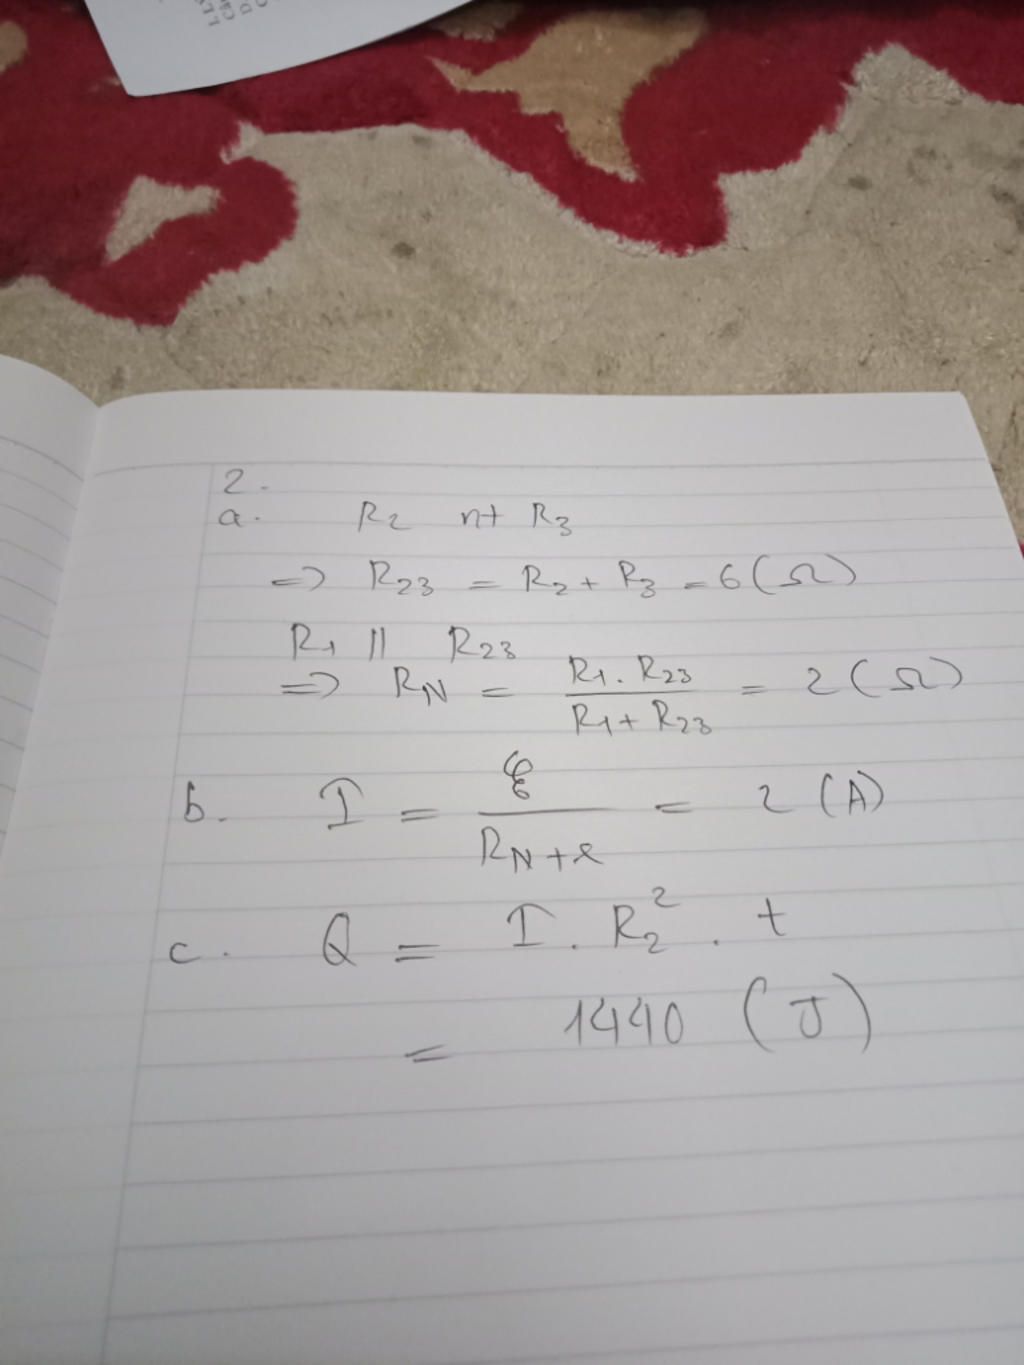 2.
a. R₂ nt R₃
=> R₂₃ = R₂ + R₃ = 6 (Ω)
R₁ || R₂₃
=> R_N = (R₁ . R₂₃) / (R₁ + R₂₃) = 2 (Ω)
b. I = ℰ / (R_N + r) = 2 (A)
c. Q = I . R₂² . t
= 1440 (J)